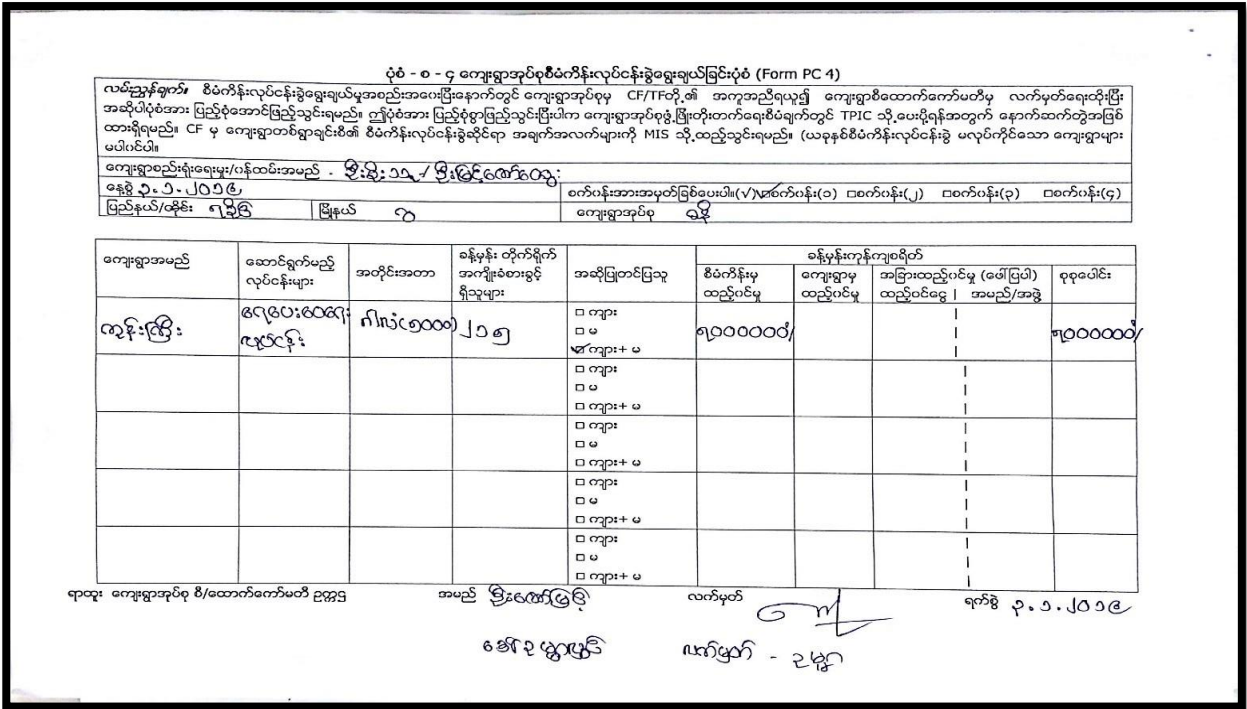 ပုံစံ - စ - ၄ ကျေးရွာအုပ်စုစီမံကိန်းလုပ်ငန်းခွဲရွေးချယ်ခြင်းပုံစံ (Form PC 4)
လမ်းညွှန်ချက်။ စီမံကိန်းလုပ်ငန်းခွဲရွေးချယ်မှုအစည်းအဝေးပြီးနောက်တွင် ကျေးရွာအုပ်စုမှ CF/TFတို့၏ အကူအညီရယူ၍ ကျေးရွာစီထောက်ကော်မတီမှ လက်မှတ်ရေးထိုးပြီး
အဆိုပါပုံစံအား ပြည့်စုံအောင်ဖြည့်သွင်းရမည်။ ဤပုံစံအား ပြည့်စုံစွာဖြည့်သွင်းပြီးပါက ကျေးရွာအုပ်စုဖွံ့ဖြိုးတိုးတက်ရေးစီမံချက်တွင် TPIC သို့ပေးပို့ရန်အတွက် နောက်ဆက်တွဲအဖြစ်
ထားရှိရမည်။ CF မှ ကျေးရွာတစ်ရွာချင်းစီ၏ စီမံကိန်းလုပ်ငန်းခွဲဆိုင်ရာ အချက်အလက်များကို MIS သို့ထည့်သွင်းရမည်။ (ယခုနှစ်စီမံကိန်းလုပ်ငန်းခွဲ မလုပ်ကိုင်သော ကျေးရွာများ
မပါဝင်ပါ။
ကျေးရွာစည်းရုံးရေးမှူး/ဝန်ထမ်းအမည် -
နေ့စွဲ ၃.၁.၂၀၁၉ စက်ဝန်းအားအမှတ်ခြစ်ပေးပါ။(√) ☑စက်ဝန်း(၁) □စက်ဝန်း(၂) □စက်ဝန်း(၃) □စက်ဝန်း(၄)
ပြည်နယ်/တိုင်း ရခိုင် မြို့နယ် ဂွ ကျေးရွာအုပ်စု
ကျေးရွာအမည် ဆောင်ရွက်မည့် လုပ်ငန်းများ အတိုင်းအတာ ခန့်မှန်း တိုက်ရိုက် အကျိုးခံစားခွင့် ရှိသူများ အဆိုပြုတင်ပြသူ ခန့်မှန်းကုန်ကျစရိတ်
စီမံကိန်းမှ ထည့်ဝင်မှု ကျေးရွာမှ ထည့်ဝင်မှု အခြားထည့်ဝင်မှု (ဖော်ပြပါ) ထည့်ဝင်ငွေ | အမည်/အဖွဲ့ စုစုပေါင်း
ကျွန်းကြီး ရေပေးဝေရေး လုပ်ငန်း ဂါလံ(၅၀၀၀) ၂၁၅ □ ကျား ၇၀၀၀၀၀၀/ ၇၀၀၀၀၀၀/
□ မ
☑ ကျား+ မ
□ ကျား
□ မ
□ ကျား+ မ
□ ကျား
□ မ
□ ကျား+ မ
□ ကျား
□ မ
□ ကျား+ မ
□ ကျား
□ မ
□ ကျား+ မ
ရာထူး ကျေးရွာအုပ်စု စီ/ထောက်ကော်မတီ ဥက္ကဌ အမည် လက်မှတ် ရက်စွဲ ၃.၁.၂၀၁၉
လက်မှတ် - ဥမ္မာ